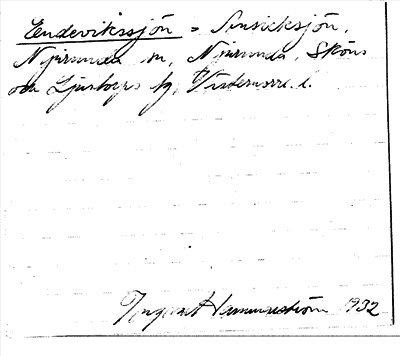 Endevikssjön = Sinsicksjön,
Njurunda sn, Njurunda, Sköns
och Ljustorps tg, Västernorrl. l.
Ingvar Hammarström 1932